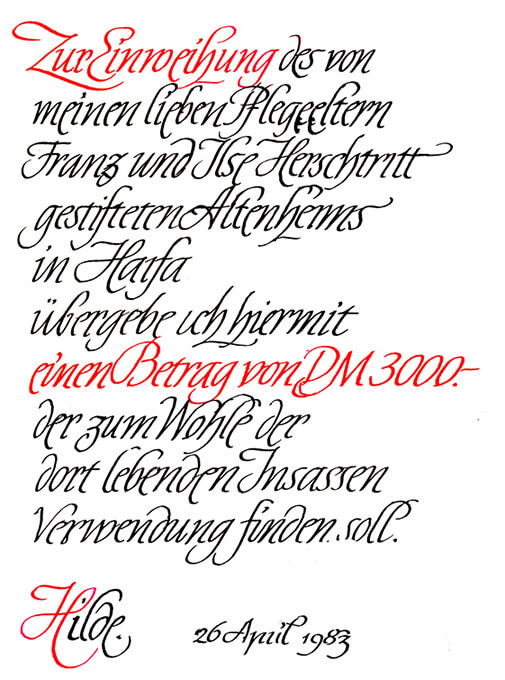 Zur Einweihung des von
meinen lieben Pflegeeltern
Franz und Ilse Herschtritt
gestifteten Altenheims
in Haifa
übergebe ich hiermit
einen Betrag von DM 3000.-
der zum Wohle der
dort lebenden Insassen
Verwendung finden soll.
Hilde.
26 April 1983